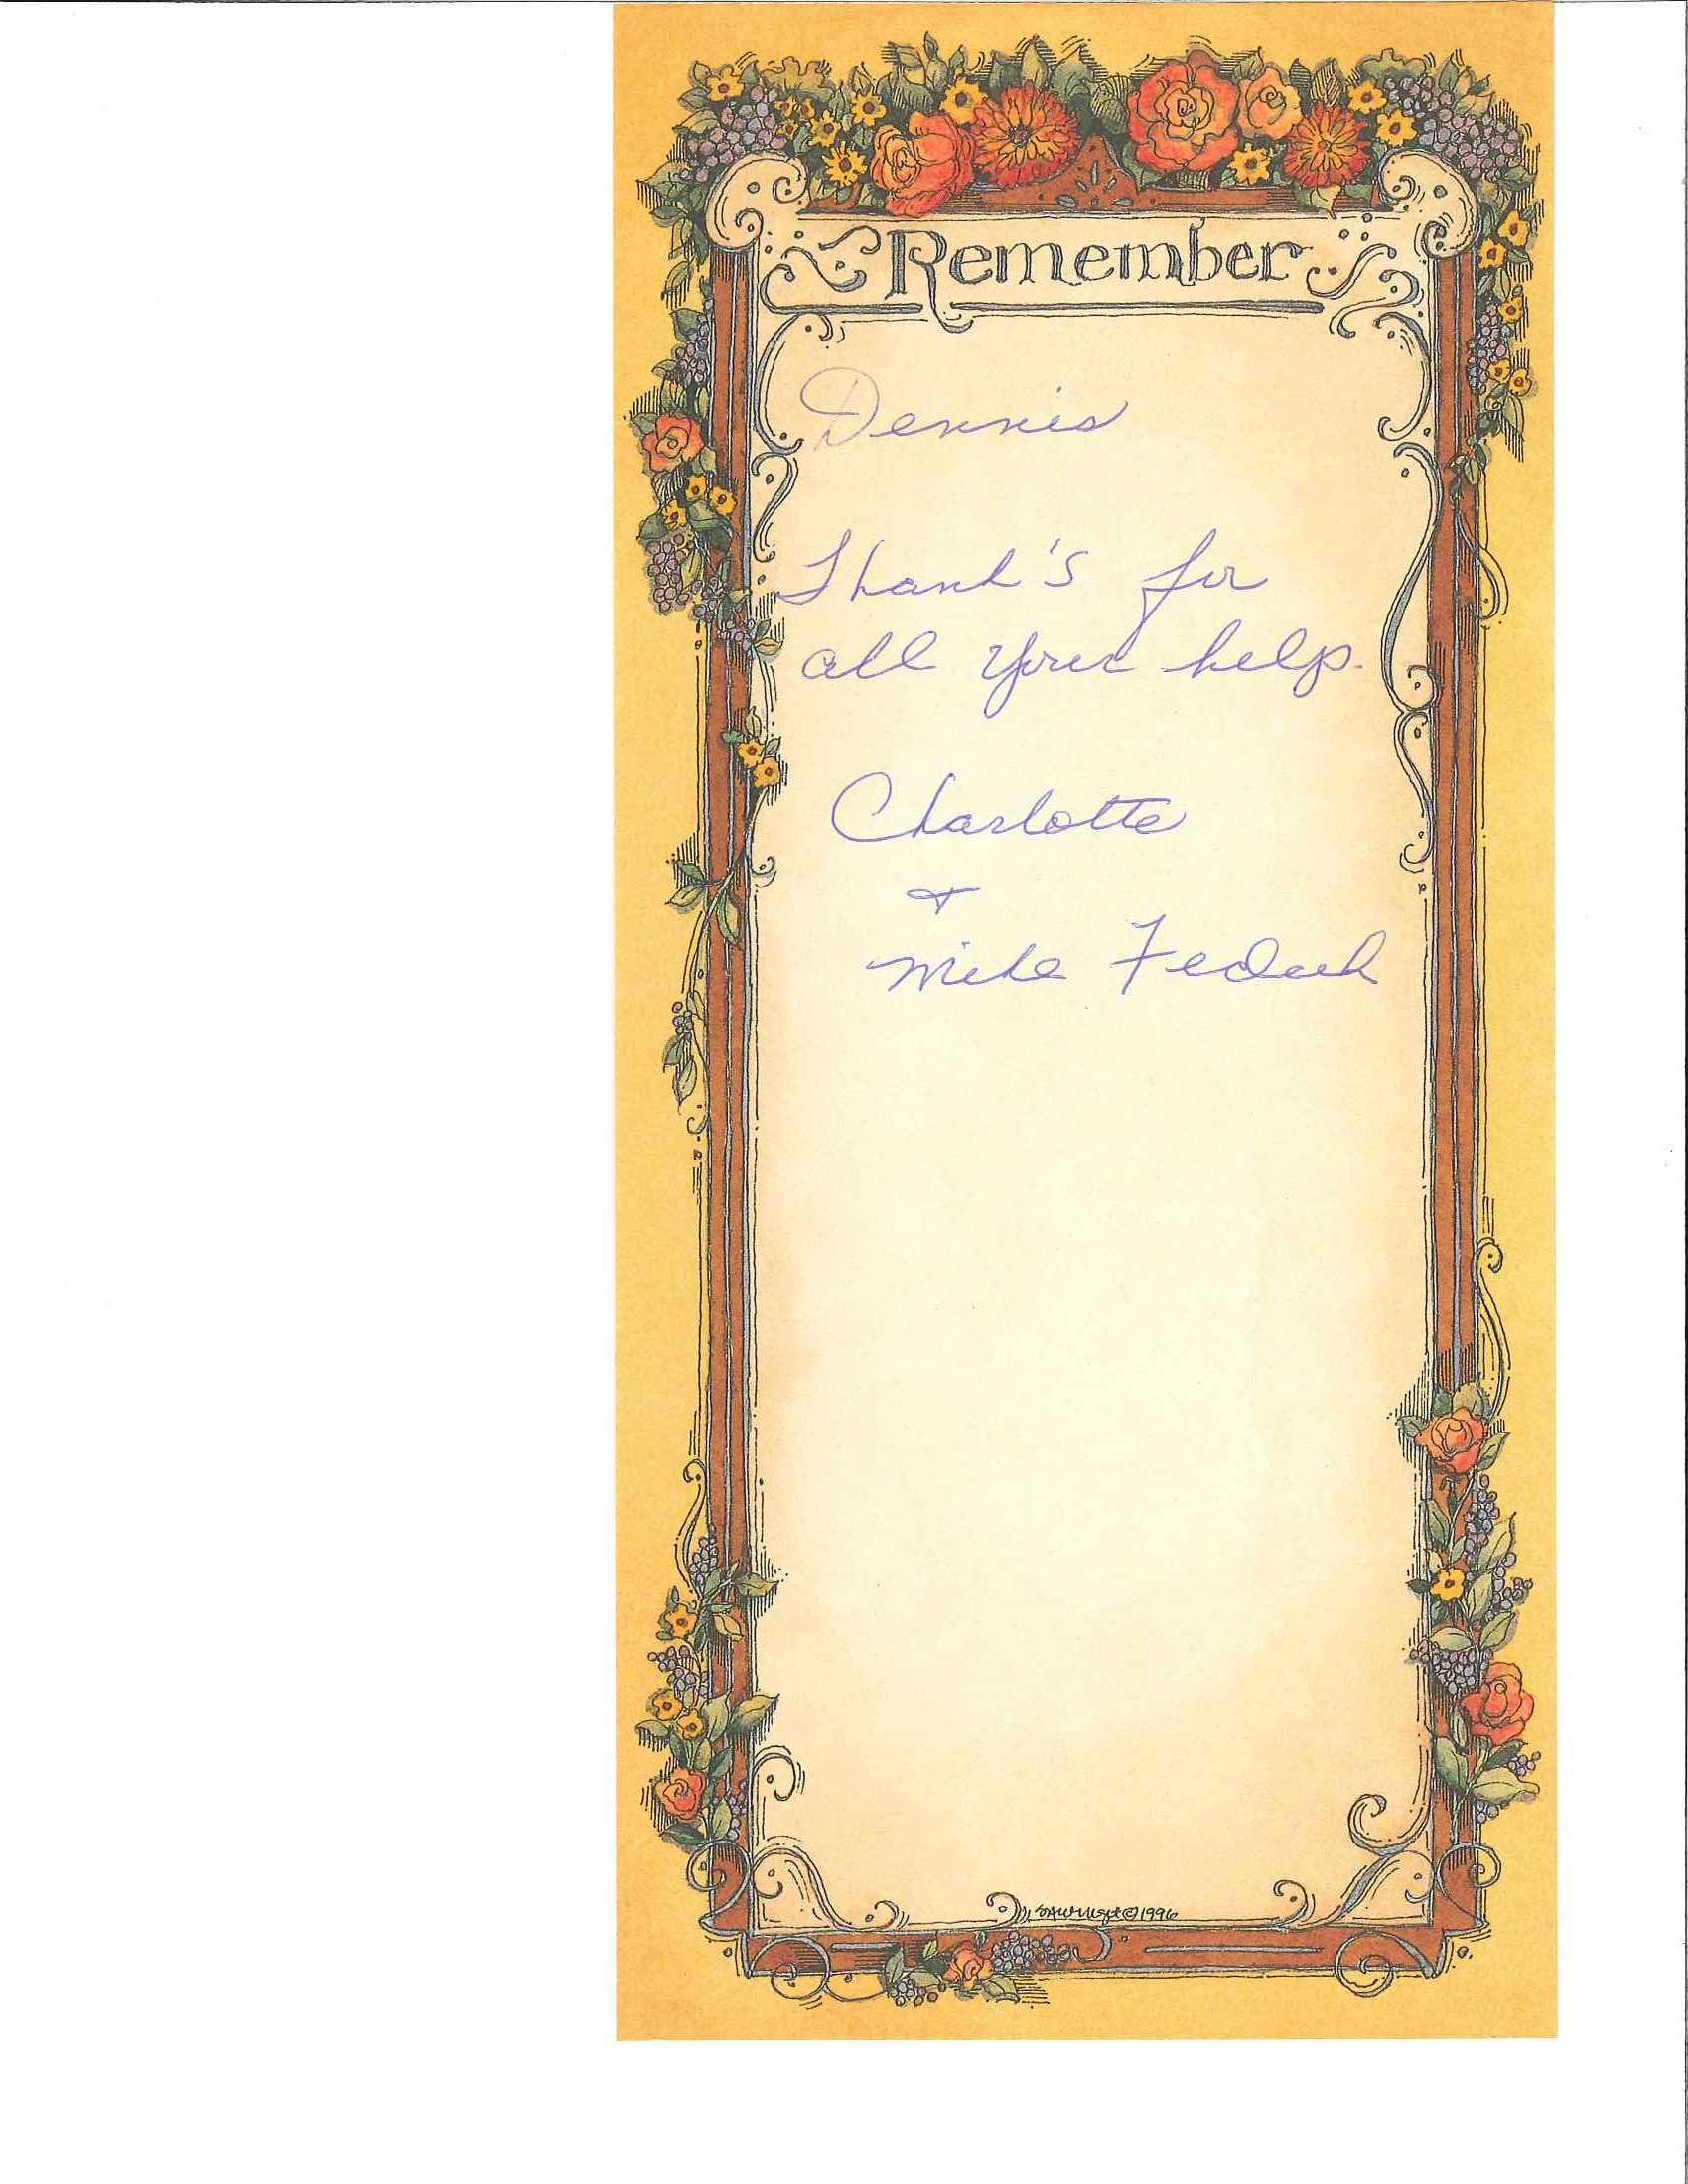 Remember
Dennis
Thank's for
all your help.
Charlotte
&
Mike
©1996